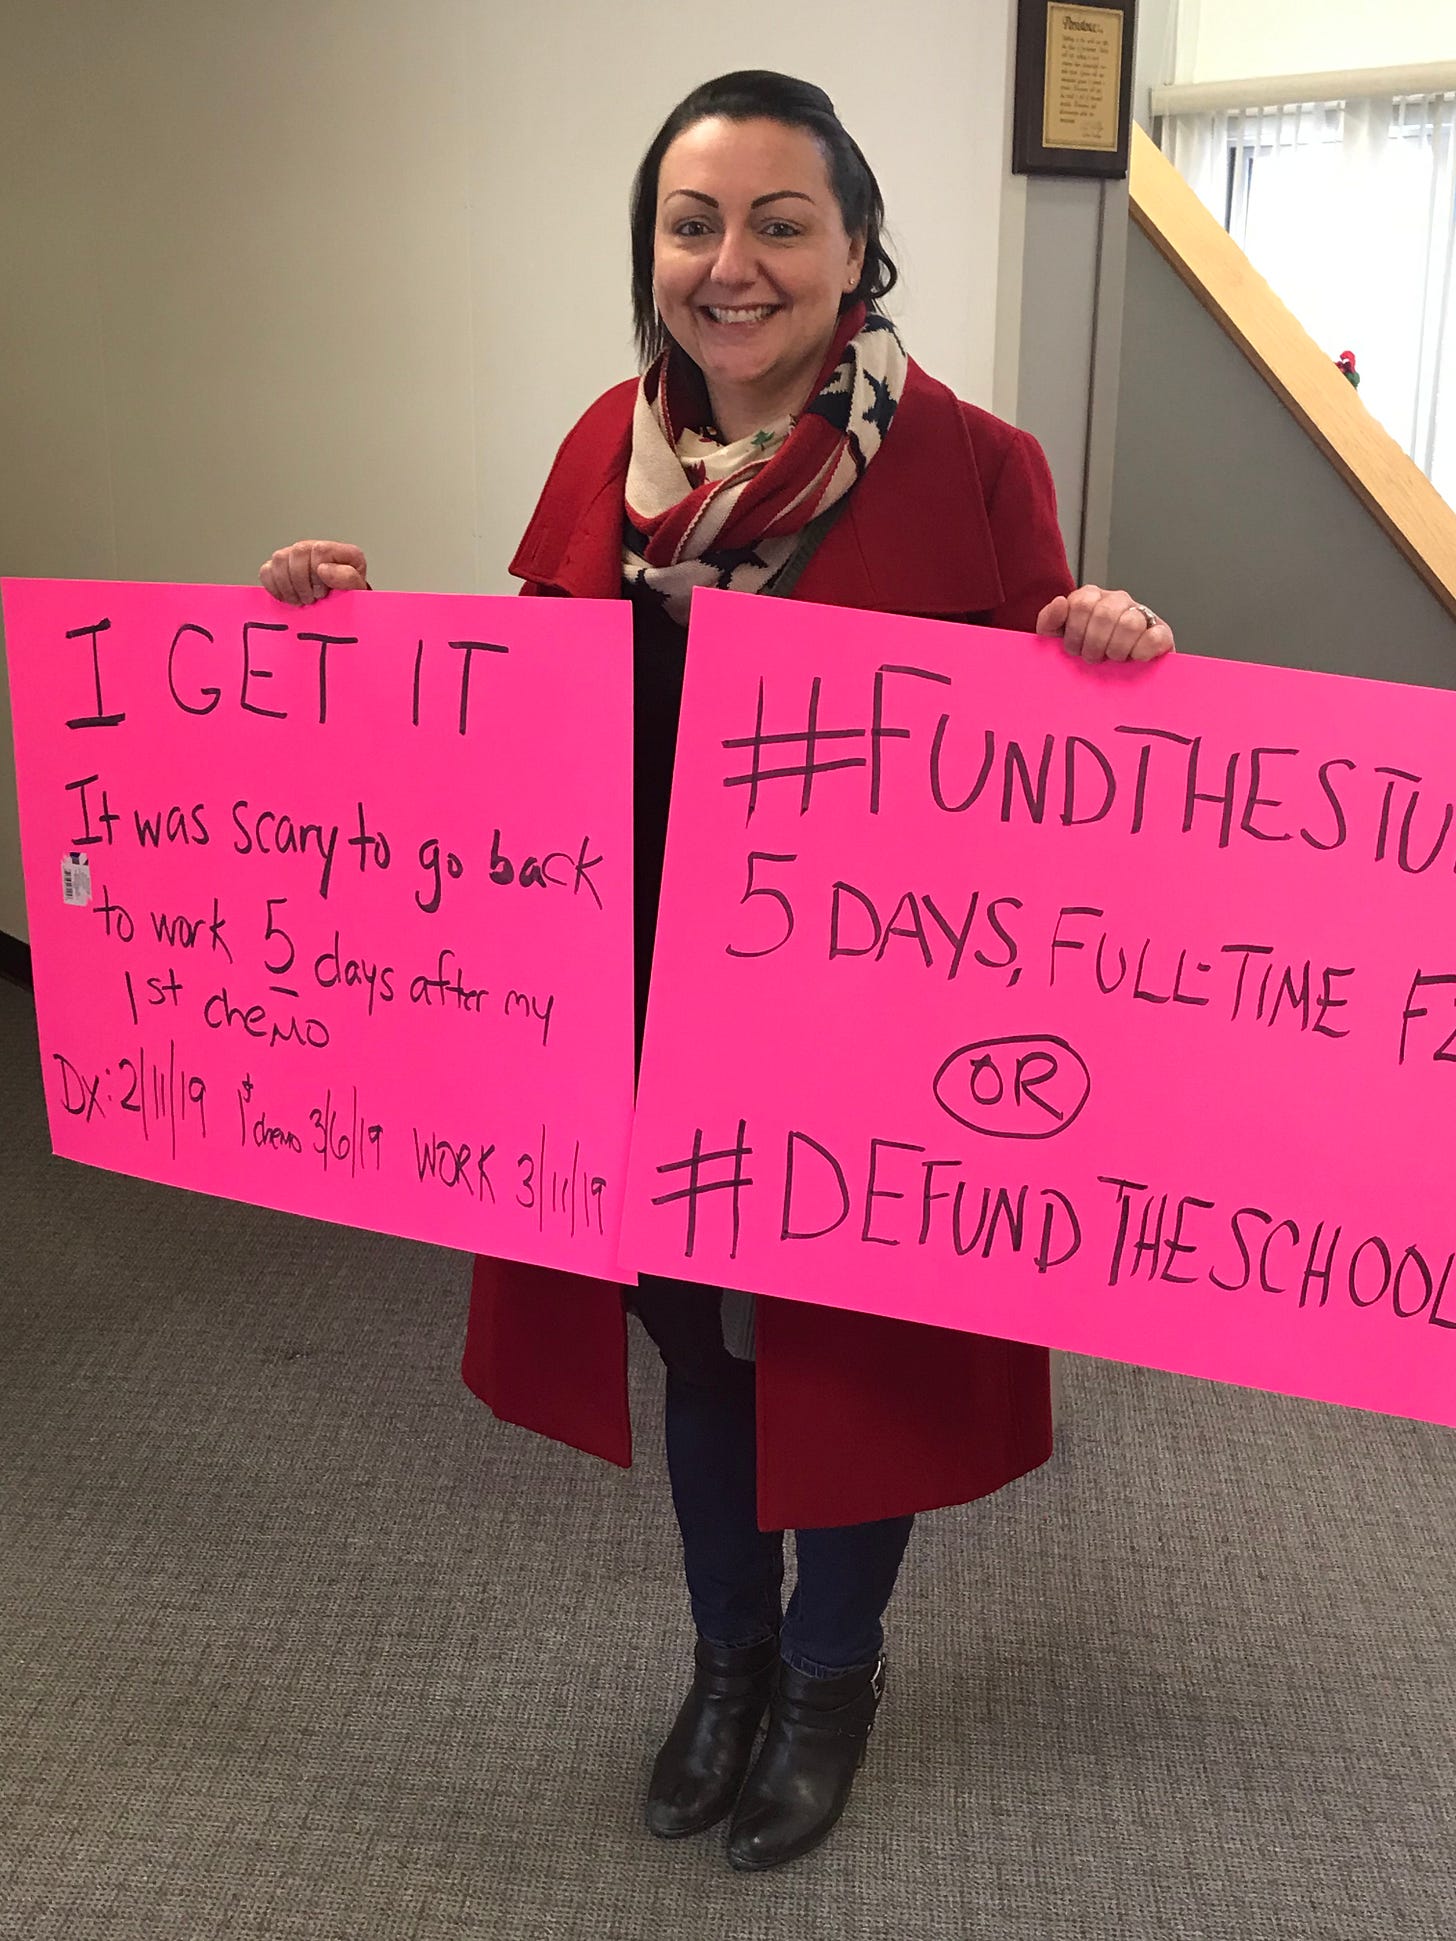 I GET IT
It was scary to go back
to work 5 days after my
1st chemo
DX: 2/11/19 1st chemo 3/6/19 WORK 3/11/19
#FUNDTHESTU
5 DAYS, FULL-TIME F2
OR
#DEFUNDTHESCHOOL
Persistence